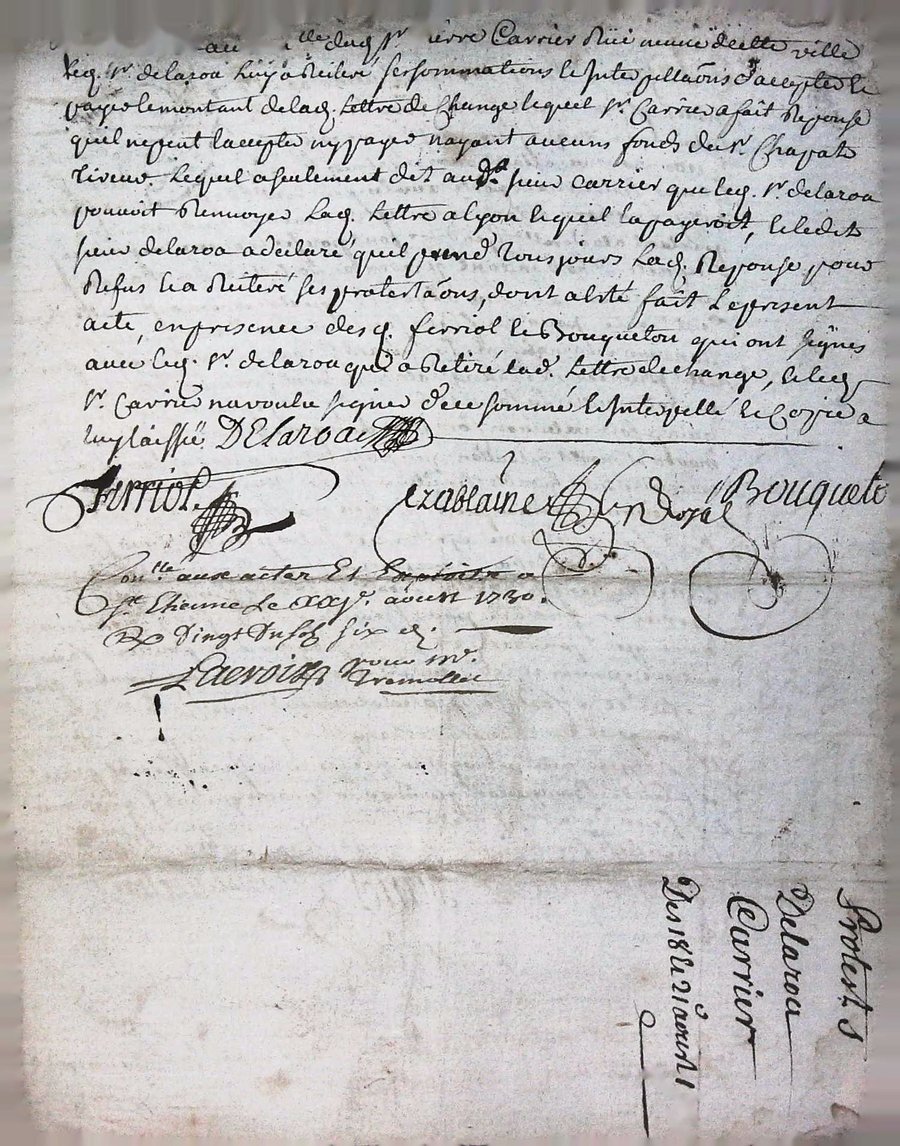 au dudt Sr ierre Carrier Rüe neuve decette ville
leq. Sr. delaroa luy a Reiteré ses sommations & Interpella͠ons d'accepter &
payer lemontant de lad. Lettre de Change lequel Sr. Carrier a fait Reponse
quil nepeut laccepter ny payer nayant aucuns fonds du Sr. Chapate
tireur. Lequel a seulement dit aud. sieur Carrier que led. Sr. delaroa
pouvoit Renvoyer Lad. Lettre a lyon lequel lapayeroit, & ledit
sieur delaroa adeclaré quil prend Tousjours Lad. Reponse pour
Refus & a Reiteré ses protesta͠ons, dont a été fait Lepresent
acte, enpresence desd. ferriol & Bouqueton qui ont signes
avec led. Sr. delaroa qui a Retiré lad. Lettre dechange, & led.
Sr. Carrier navoulu signer de ce sommé & Interpellé & Copie a
luy laissée DElaroa
ferriol. Bouquete
Conlle. aux actes Et Exploits a
St. Etienne Le XXJe. aoust 1730.
Rx Vingt Du sols six d.
Lacroix pour Mr.
Tremollet
Protest S
Delaroa
Carrier
Des 18 & 21 aoust